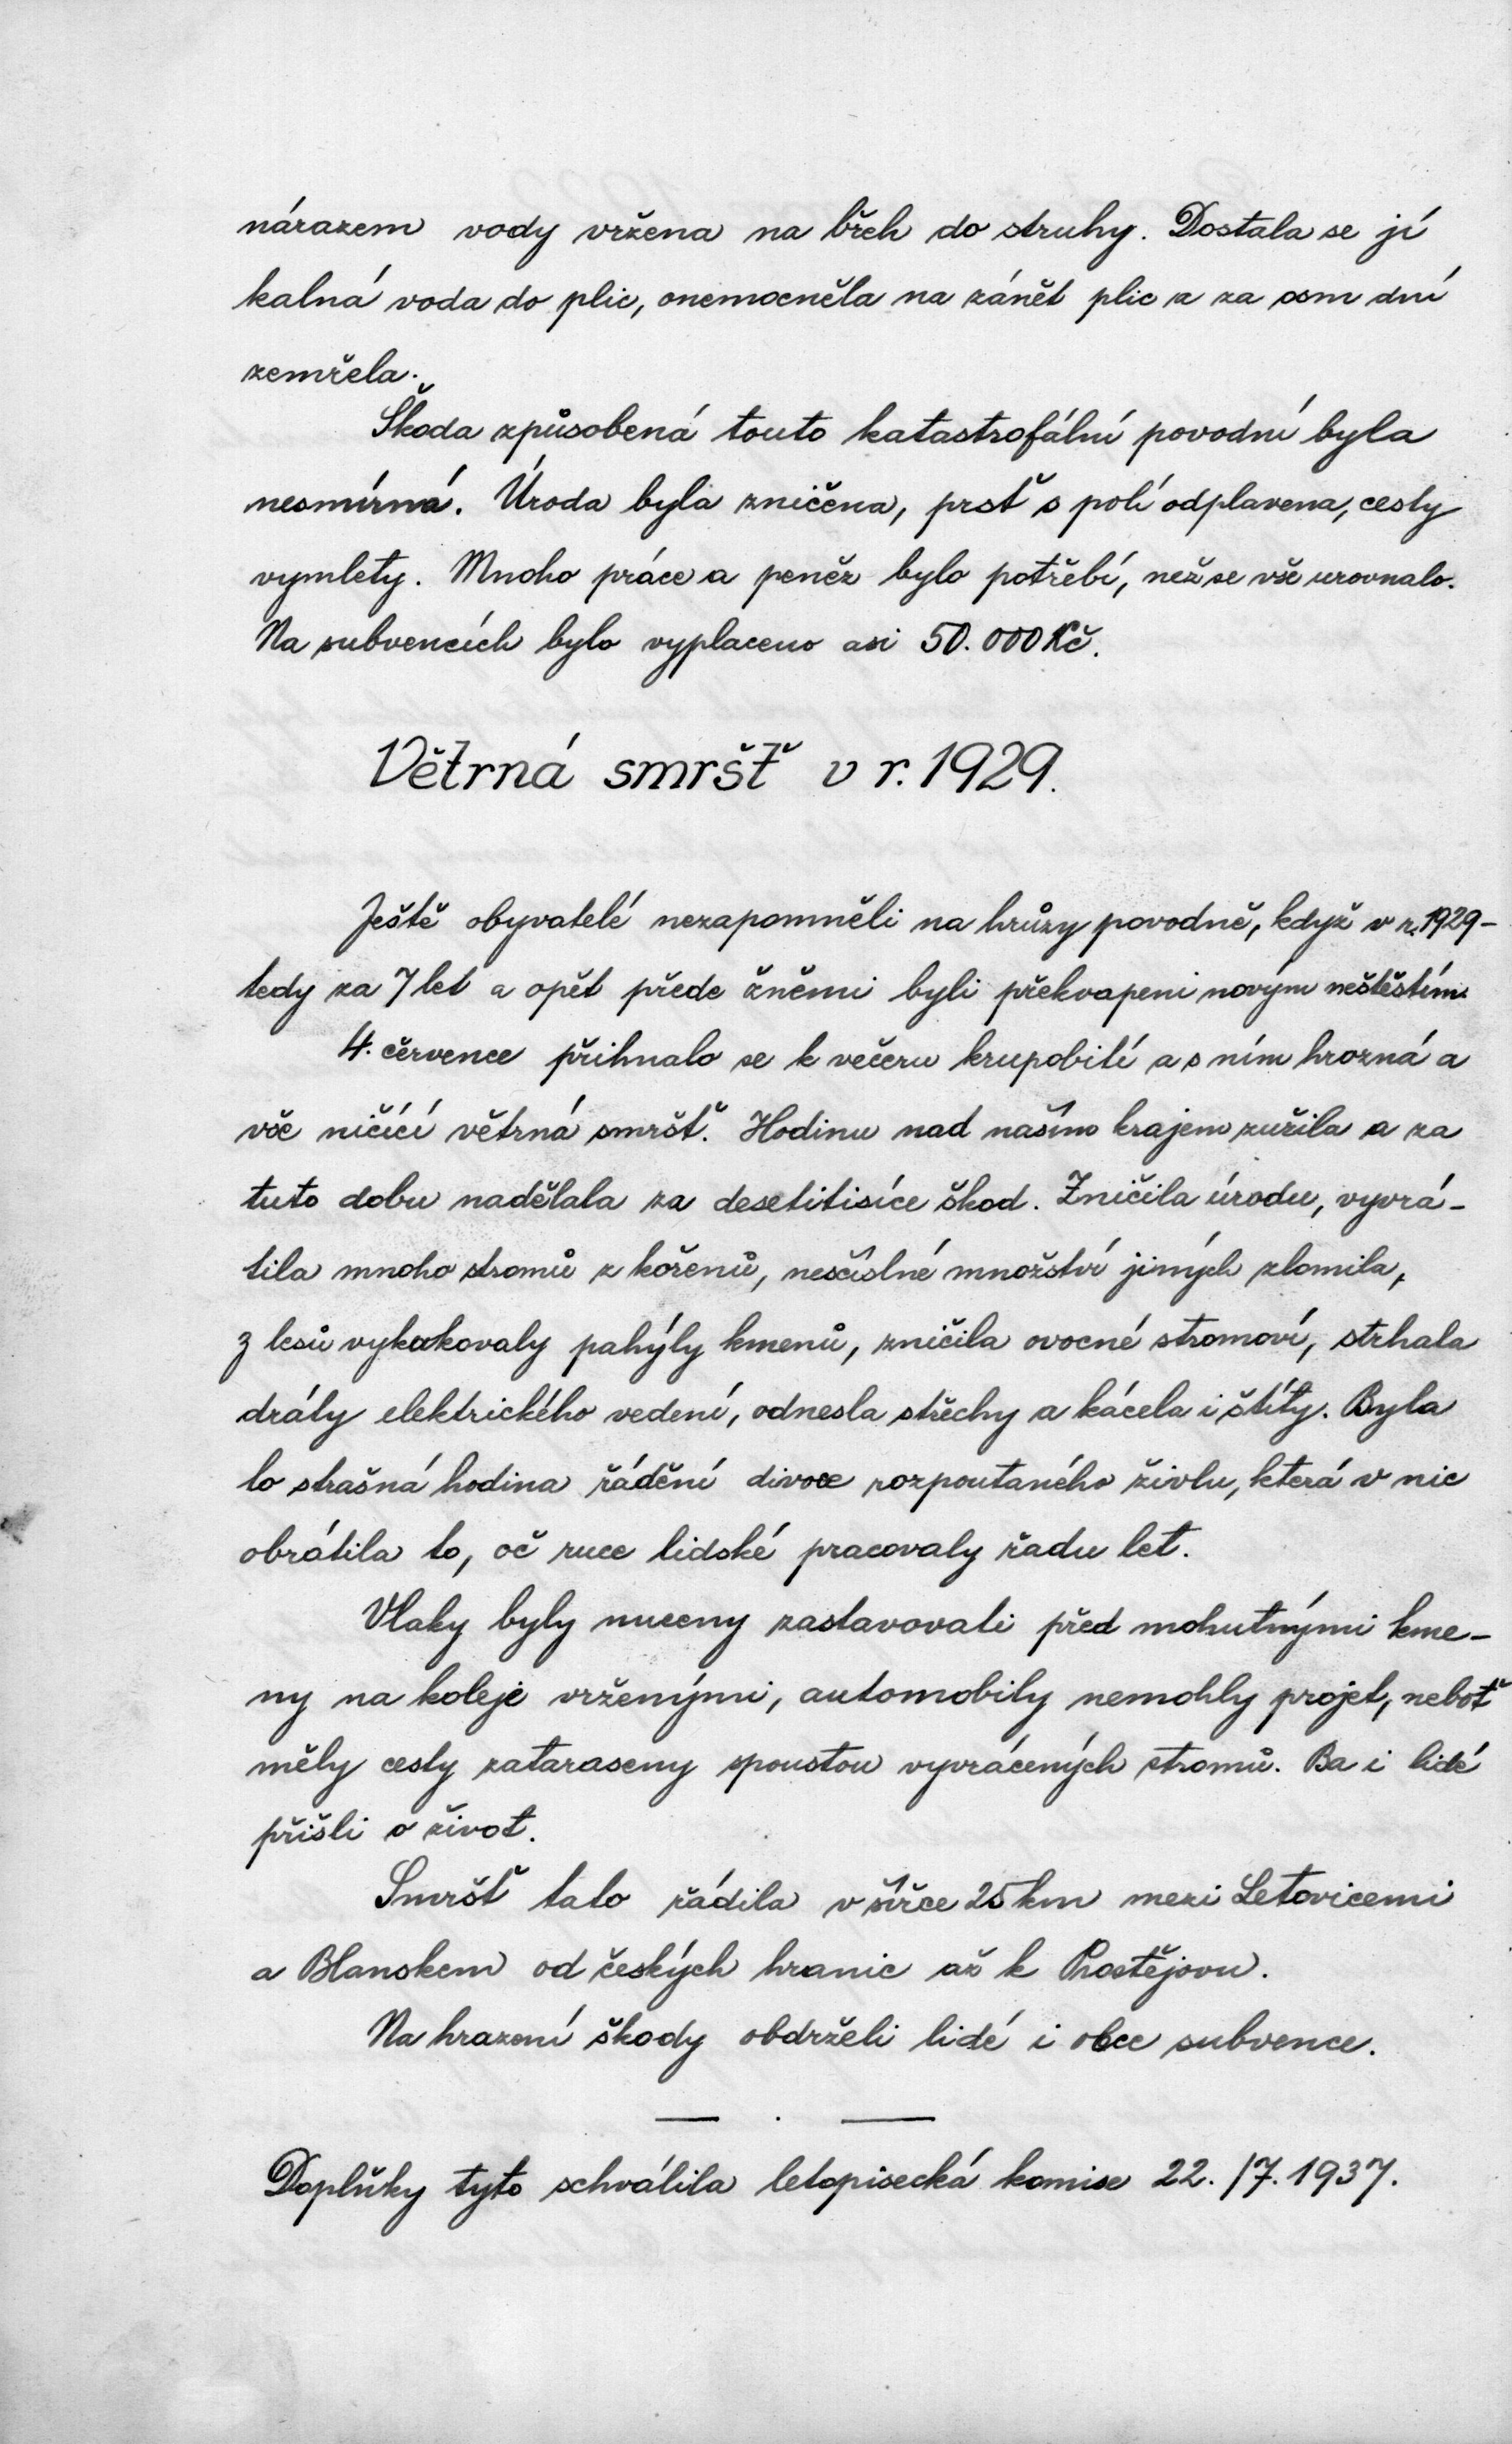 nárazem vody vržena na břeh do struhy. Dostala se jí
kalná voda do plic, onemocněla na zánět plic a za osm dní
zemřela.
Škoda způsobená touto katastrofální povodní byla
nesmírná. Úroda byla zničena, prsť s polí odplavena, cesty
vymlety. Mnoho práce a peněz bylo potřebí, než se vše urovnalo.
Na subvencích bylo vyplaceno asi 50.000 Kč.
Větrná smršť v r. 1929.
Ještě obyvatelé nezapomněli na hrůzy povodně, když v r. 1929 -
tedy za 7 let a opět přede žněmi byli překvapeni novým neštěstím.
4. července přihnalo se k večeru krupobití a s ním hrozná a
vše ničící větrná smršť. Hodinu nad naším krajem zuřila a za
tuto dobu nadělala za desetitisíce škod. Zničila úrodu, vyvrá-
tila mnoho stromů z kořenů, nesčíslné množství jiných zlomila,
z lesů vykukovaly pahýly kmenů, zničila ovocné stromoví, strhala
dráty elektrického vedení, odnesla střechy a kácela i štíty. Byla
to strašná hodina řádění divoce rozpoutaného živlu, která v nic
obrátila to, oč ruce lidské pracovaly řadu let.
Vlaky byly nuceny zastavovati před mohutnými kme-
ny na koleje vrženými, automobily nemohly projet, neboť
měly cesty zataraseny spoustou vyvrácených stromů. Ba i lidé
přišli o život.
Smršť tato řádila v šířce 25 km mezi Letovicemi
a Blanskem od českých hranic až k Prostějovu.
Na hrazení škody obdrželi lidé i obce subvence.
Doplňky tyto schválila letopisecká komise 22./7. 1937.